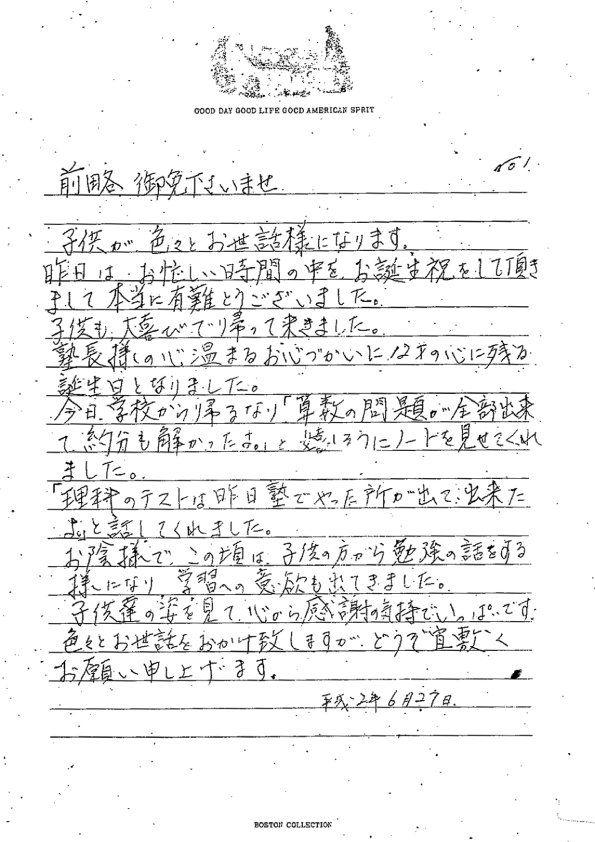 GOOD DAY GOOD LIFE GOOD AMERICAN SPRIT
No 1.
前略 御免下さいませ
子供が、色々とお世話様になります。
昨日は、お忙しい時間の中を、お誕生祝をして頂き
まして本当に有難とうございました。
子供も、大喜びで帰って来きました。
塾長様の心温まるお心づかいに、12才の心に残る
誕生日となりました。
今日、学校から帰るなり「算数の問題が全部出来
て、約分も解かったよ。」と嬉しそうにノートを見せてくれ
ました。
「理科のテストは昨日塾でやった所が出て、出来た
よ」と話してくれました。
お陰様で、この頃は、子供の方から勉強の話をする
様になり、学習への意欲も出てきました。
子供達の姿を見て、心から感謝の気持でいっぱいです。
色々とお世話をおかけ致しますが、どうぞ宜敷く
お願い申し上げます。
平成2年6月27日.
BOSTON COLLECTION